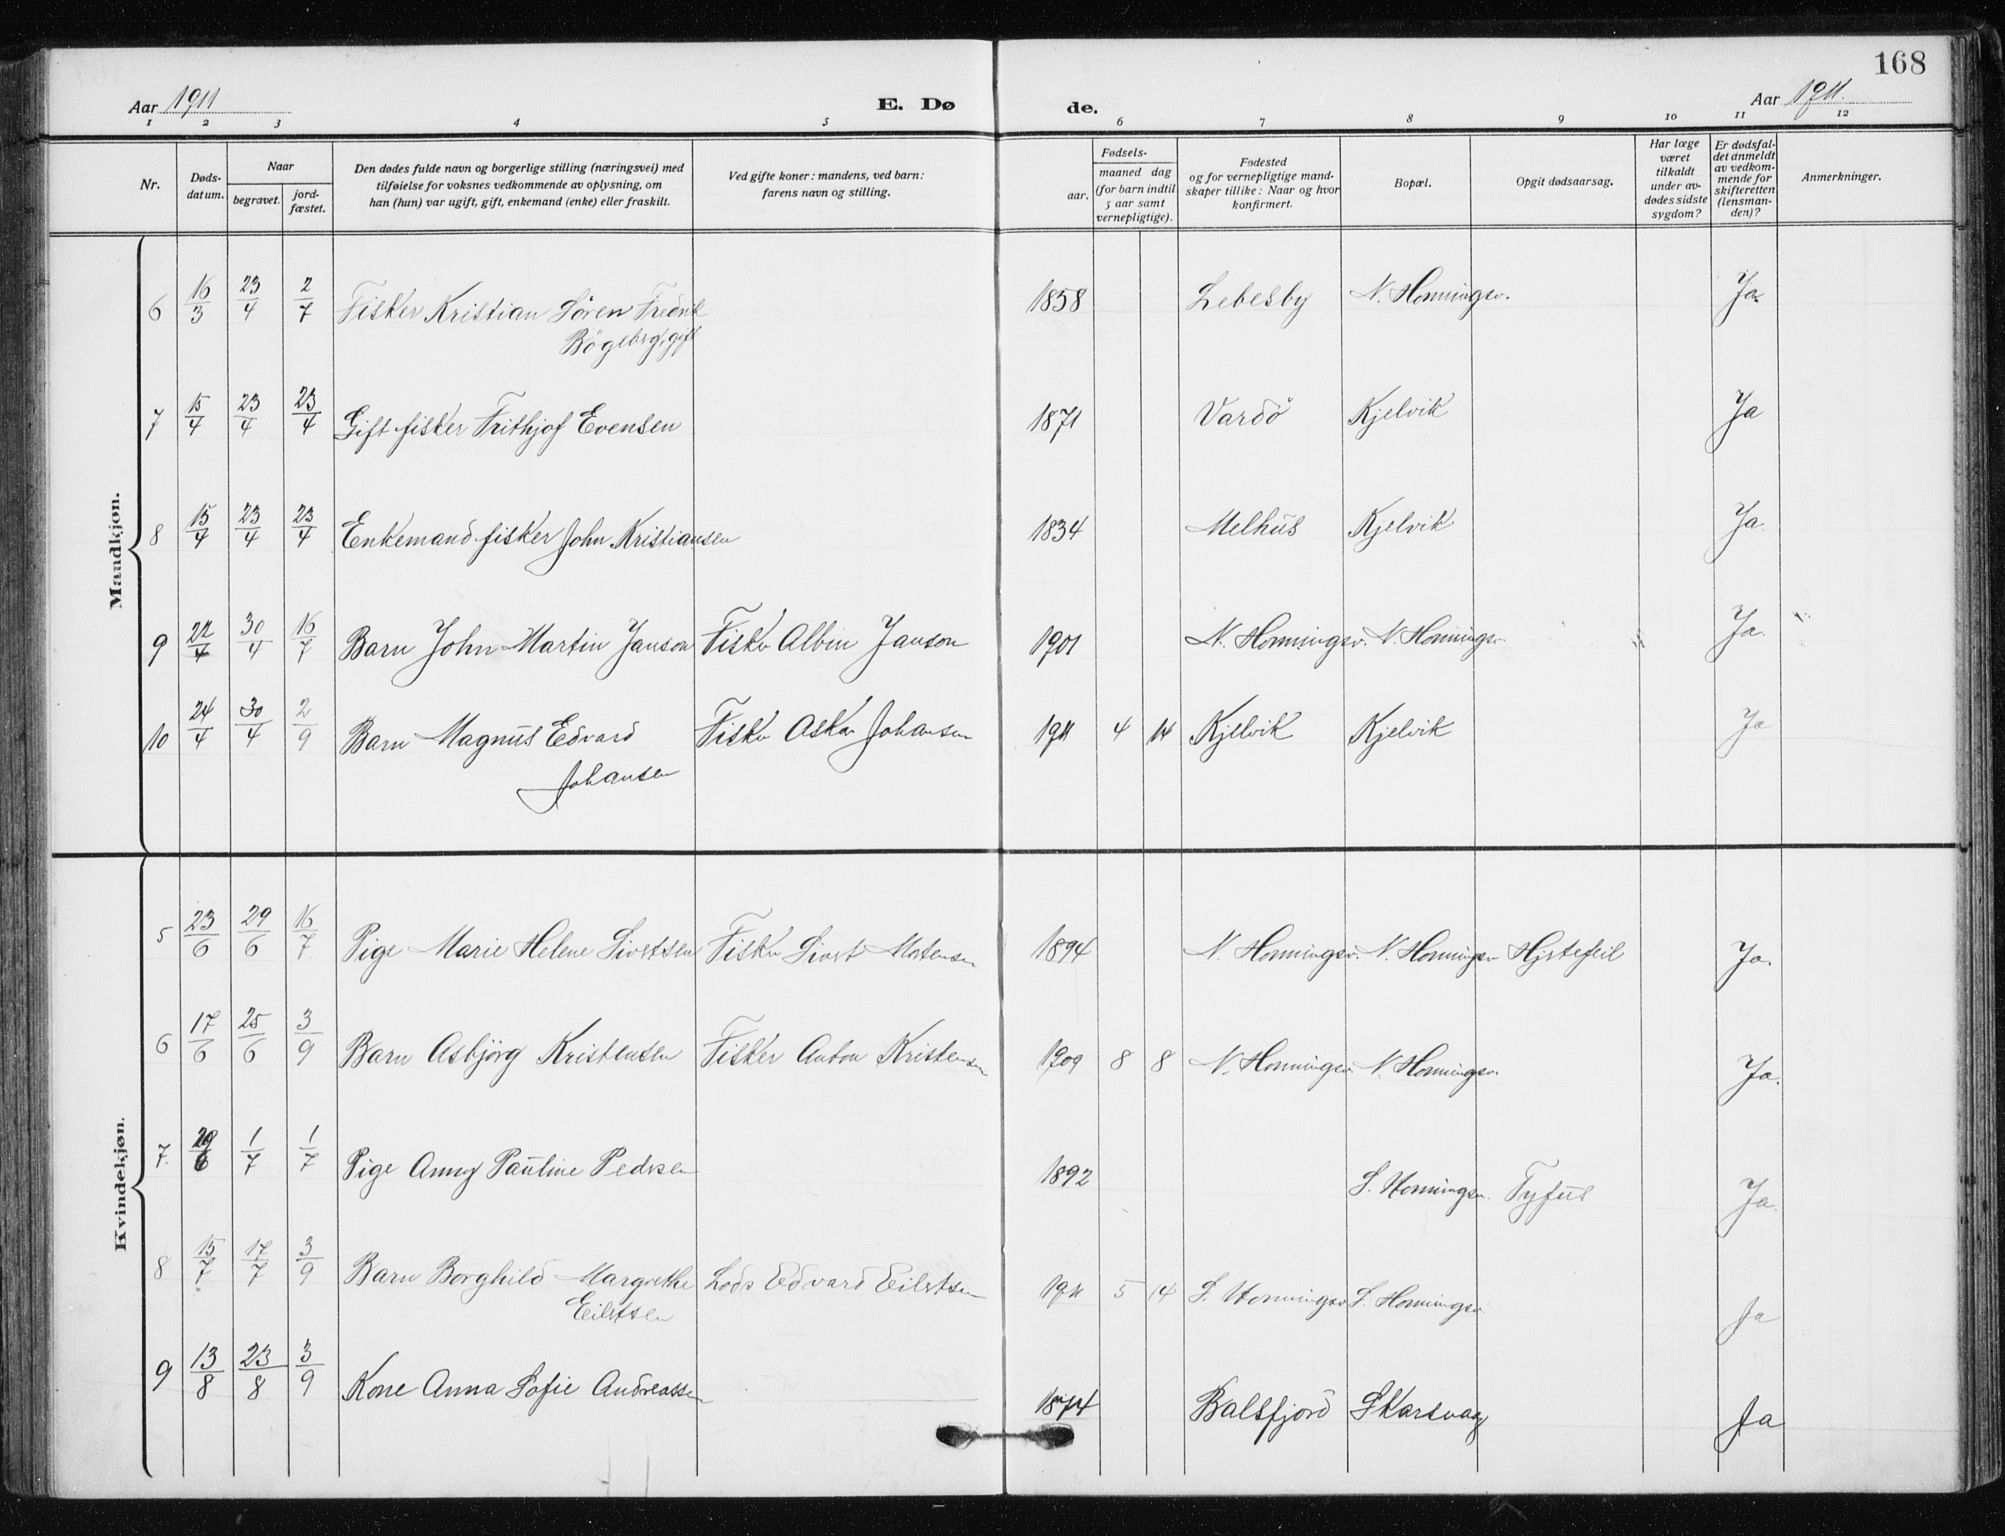 168
Aar 1911 E. Dø de. Aar 1911.
1 2 3 4 5 6 7 8 9 10 11 12
Nr.
Døds-
datum.
Naar
begravet.
jord-
fæstet.
Den dødes fulde navn og borgerlige stilling (næringsvei) med
tilføielse for voksnes vedkommende av oplysning, om
han (hun) var ugift, gift, enkemand (enke) eller fraskilt.
Ved gifte koner: mandens, ved barn:
farens navn og stilling.
Fødsels-
aar.
maaned dag
(for barn indtil
5 aar samt
vernepligtige).
Fødested
og for vernepligtige mand-
skaper tillike: Naar og hvor
konfirmert.
Bopæl.
Opgit dødsaarsag.
Har læge
været
tilkaldt
under av-
dødes sidste
sygdom?
Er dødsfal-
det anmeldt
av vedkom-
mende for
skifteretten
(lensman-
den)?
Anmerkninger.
Mandkjøn.
6 16/3 23/4 2/7 Fisker Kristian Sören Fredrik 1858 Lebesby N. Honningsv. Ja
Bögeberg, gift
7 15/4 23/4 23/4 Gift fisker Frithjof Evensen 1871 Vardö Kjelvik Ja
8 15/4 23/4 23/4 Enkemand fisker John Kristiansen 1834 Melhus Kjelvik Ja.
9 22/4 30/4 16/7 Barn John Martin Janson Fisker Albin Janson 1901 N. Honningsv. N. Honningsv. Ja.
10 24/4 30/4 2/9 Barn Magnus Edvard Fisker Askar Johansen 1911 4 14 Kjelvik Kjelvik Ja
Johansen
Kvindekjøn.
5 23/6 29/6 16/7. Pige Marie Helene Sivertsen Fisker Sivert Mortensen 1894 N. Honningsv. N. Honningsv Hjertefeil Ja.
6 17/6 25/6 3/9 Barn Asbjörg Kristensen Fisker Anton Kristensen 1909 8 8 N. Honningsv. N. Honningsv. Ja.
7. 29/6 1/7 1/7 Pige Anny Pauline Pedersen 1892 S. Honningsv. Tyfus Ja.
8 15/7 17/7 3/9 Barn Borghild Margrethe Lods Edvard Eilertsen 1911 5 14 S. Honningsv S. Honningsv. Ja
Eilertsen
9 13/8 23/8 3/9 Kone Anna Sofie Andreassen 1874 Balsfjord Skarsvaag Ja